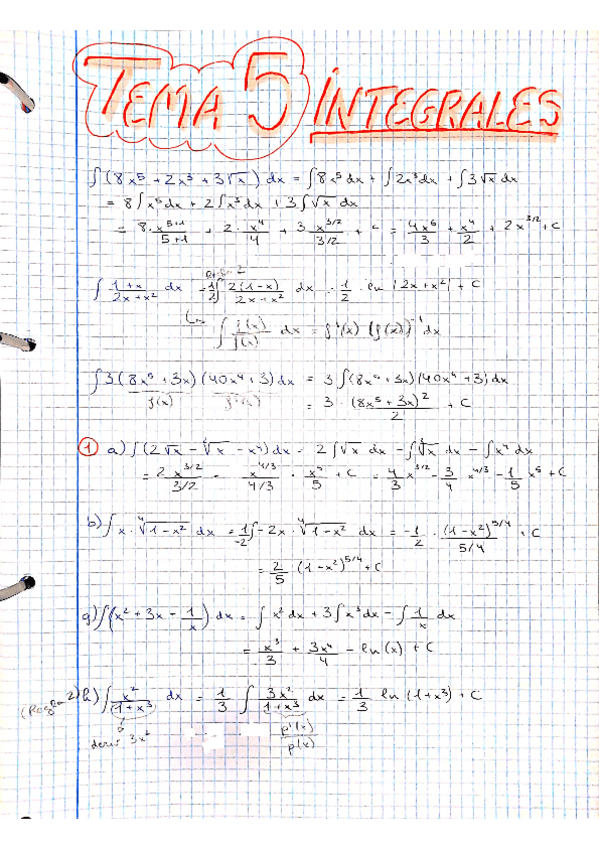 TEMA 5 INTEGRALES
∫(8x⁵ + 2x³ + 3√x) dx = ∫8x⁵dx + ∫2x³dx + ∫3√x dx
= 8∫x⁵dx + 2∫x³dx + 3∫√x dx
= 8·x⁵⁺¹/5+1 + 2·x⁴/4 + 3 x^3/2/3/2 + C = 4x⁶/3 + x⁴/2 + 2x^3/2 + C
∫ 1+x/2x+x² dx = 1/2 ∫ 2(1-x)/2x+x² dx · 1/2 · ln|2x+x²| + C
∫ f'(x)/f(x) dx = f'(x) (f(x))⁻¹dx
∫3(8x⁵+3x)(40x⁴+3)dx = 3∫(8x⁵+3x)(40x⁴+3)dx
f(x) f'(x) = 3·(8x⁵+3x)²/2 + C
① a) ∫(2√x - ³√x - x⁴)dx = 2∫√x dx - ∫³√x dx - ∫x⁴dx
= 2x^3/2/3/2 - x^4/3/4/3 - x⁵/5 + C = 4/3 x^3/2 - 3/4 x^4/3 - 1/5 x⁵ + C
b) ∫x·⁴√1-x² dx = 1/-2 ∫-2x·⁴√1-x² dx = -1/2 · (1-x²)^5/4/5/4 + C
= 2/5 (1-x²)^5/4 + C
g) ∫(x² + 3x - 1/x) dx = ∫x²dx + 3∫x³dx - ∫1/x dx
= x³/3 + 3x⁴/4 - ln(x) + C
2) h) ∫ x²/1+x³ dx = 1/3 ∫ 3x²/1+x³ dx = 1/3 ln(1+x³) + C
deriv 3x² p'(x)/p(x)